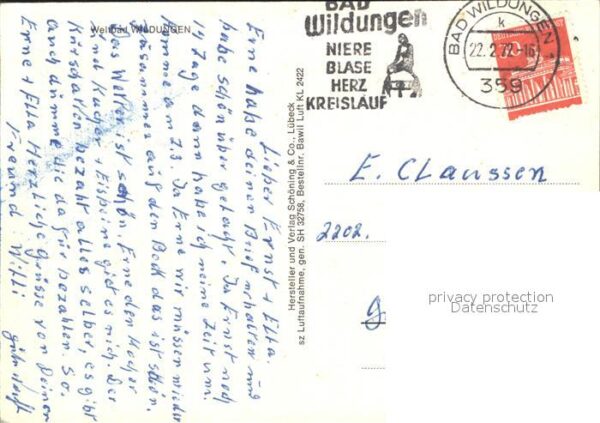 Weltbad WILDUNGEN
Lieber Ernst + Ella.
Erne habe deinen Brief erhalten und
habe schön über gelacht. Ja Ernst noch
14 Tage dann habe ich meine Zeit um.
komme am 7.3. Ja Erne wir müssen wieder
auf den Bock das ist schön.
Das Wetter ist schön. Erne den Hocker
mit Kuchen + Eispeine gibt es nich. Der
Kurschatten bezahlt alles selber, es gibt
auch dumme die dafür bezahlen. So.
Erne + Ella Herzliche Grüsse von Deinen
Freund Willi
Hersteller und Verlag Schöning & Co., Lübeck
sz Luftaufnahme, gen. SH 32758, Bestellnr. Bawil Luft KL 2422
BAD
Wildungen
NIERE
BLASE
HERZ
KREISLAUF
BAD WILDUNGEN
k
22.2.72-16
359
E. Claussen
2202.
privacy protection
Datenschutz